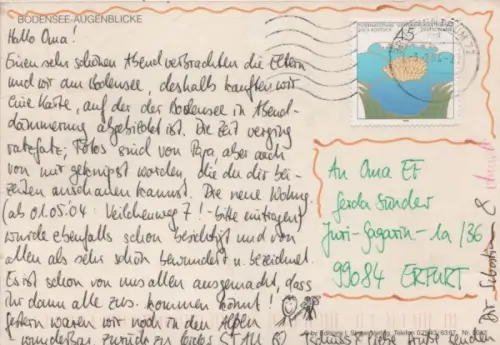 BODENSEE-AUGENBLICKE
Hallo Oma!
Einen sehr schönen Abend verbrachten die Eltern
und wir am Bodensee, deshalb kauften wir
eine Karte, auf der der Bodensee in Abend-
dämmerung abgebildet ist. Die Zeit verging
ratzfatz; Fotos sind von Papa, aber auch
von mir geknipst worden, die du dir bei-
zeiten anschauen kannst. Die neue Wohng.
(ab 01.05.04: Veilchenweg 7! - bitte eintragen)
wurde ebenfalls schon besichtigt und von
allen als sehr schön bewundert u. bezeichnet.
Es ist schon von uns allen ausgemacht, dass
ihr dann alle zus. kommen könnt!
Gestern waren wir noch in den Alpen
wunderbar, zurück zu
45
An Oma EF
Gerda Sünder
Juri-Gagarin-1a/36
99084 ERFURT
Tschüss & liebe Grüße senden
Dir Sebastian &